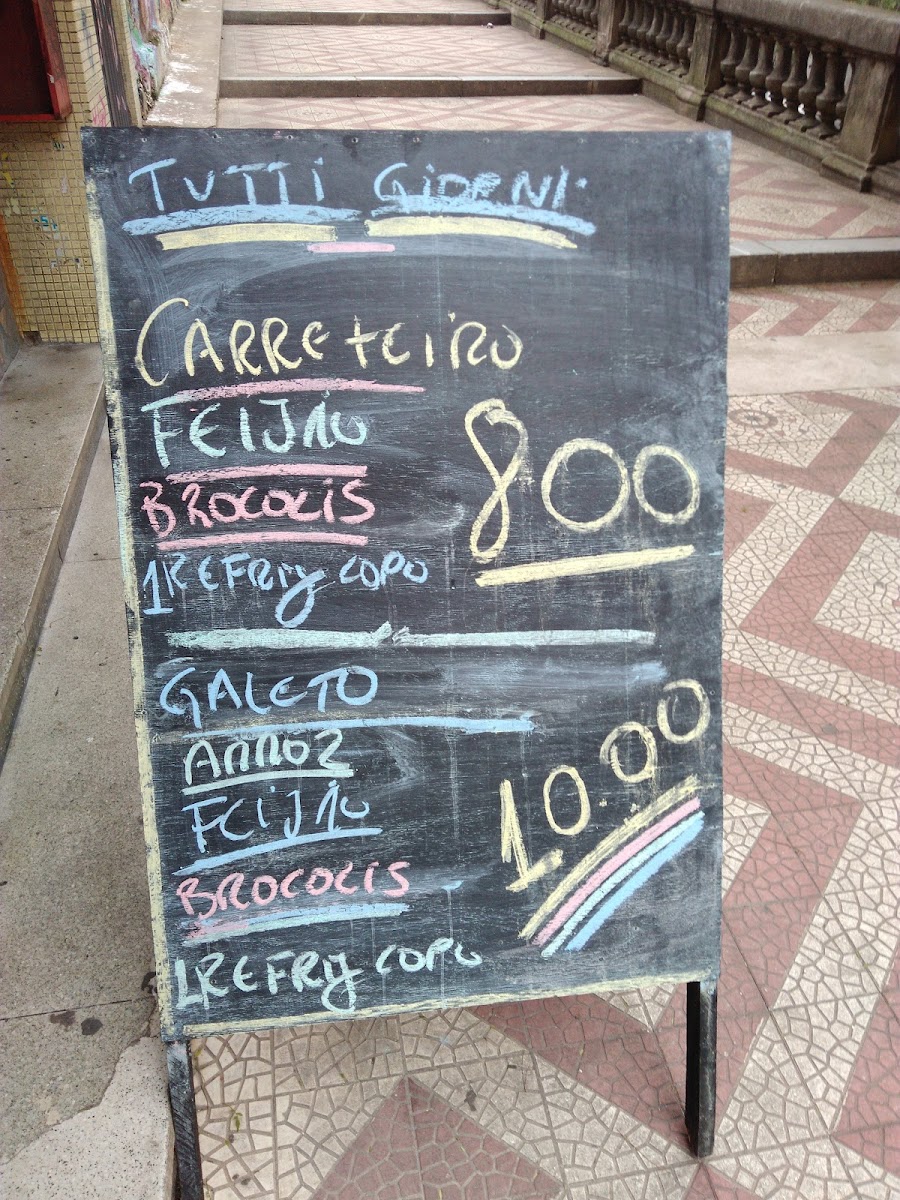 TUTTI GIORNI
CARRETEIRO
FEIJÃO
BROCOLIS
800
1 REFRIJ COPO
GALETO
ARROZ
FEIJÃO
10.00
BROCOLIS
1 REFRIJ COPO